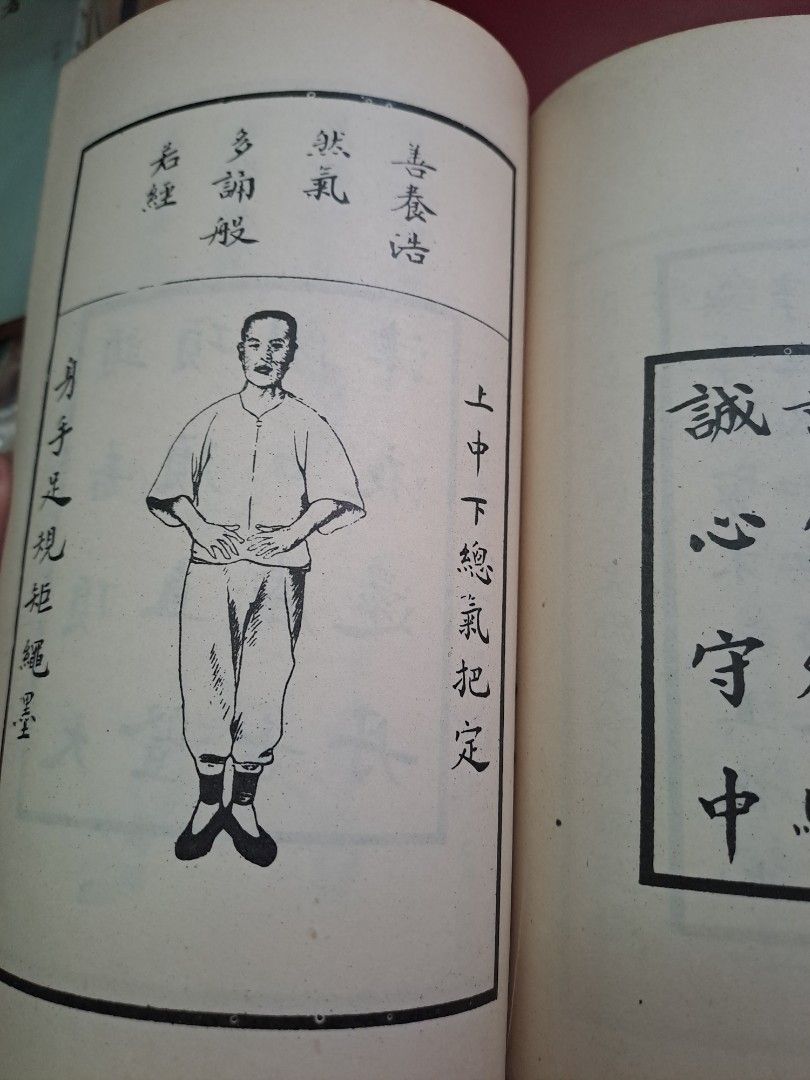 善養浩
然氣
多誦般
若經
上中下總氣把定
身手足規矩繩墨
誠心守中